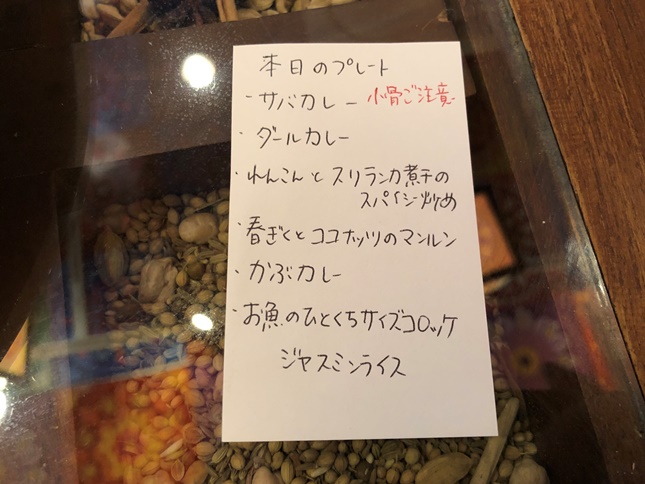 本日のプレート
・サバカレー 小骨ご注意
・ダールカレー
・れんこんとスリランカ煮干の
スパイシー炒め
・春ぎくとココナッツのマンルン
・かぶカレー
・お魚のひとくちサイズコロッケ
ジャスミンライス